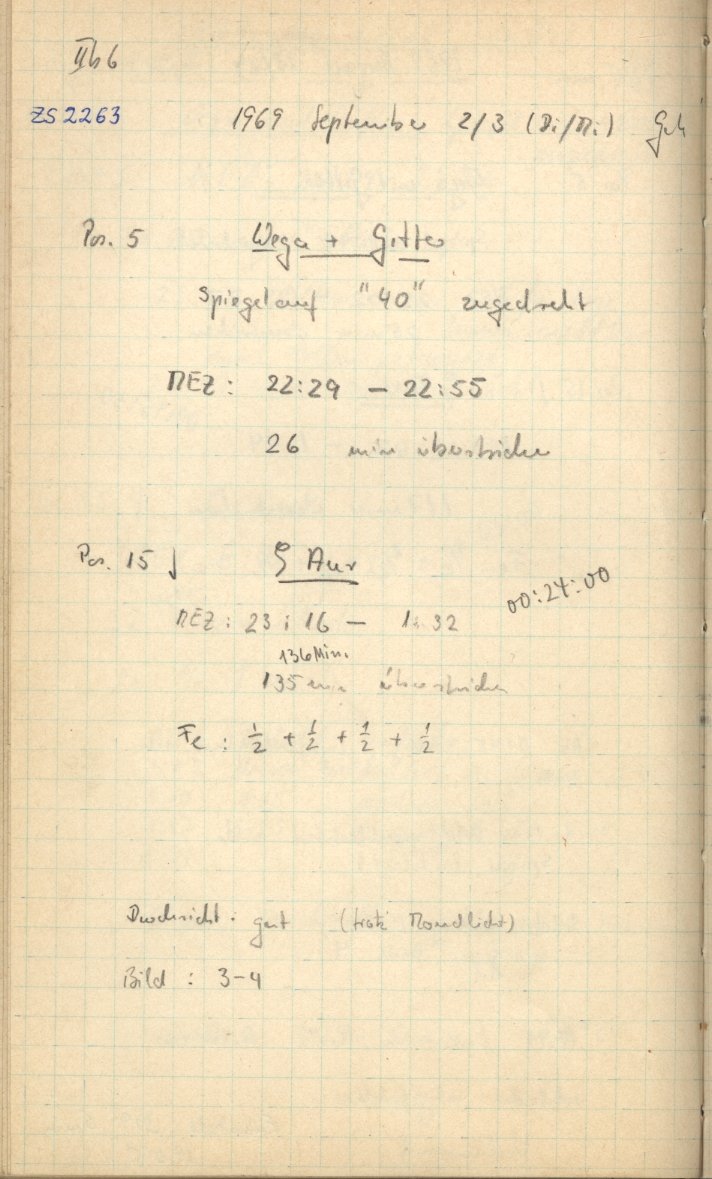 II b 6
ZS 2263 1969 September 2/3 (Di/Mi) Guh
Pos. 5 Wega + Gitter
Spiegel auf "40" zugedreht
MEZ: 22:29 – 22:55
26 min überstrichen
Pos. 15 ↓ ζ Aur
MEZ: 23:16 – 1:32 00:24:00
136 Min.
135 min überstrichen
Fe: ½ + ½ + ½ + ½
Durchsicht: gut (trotz Mondlicht)
Bild: 3-4